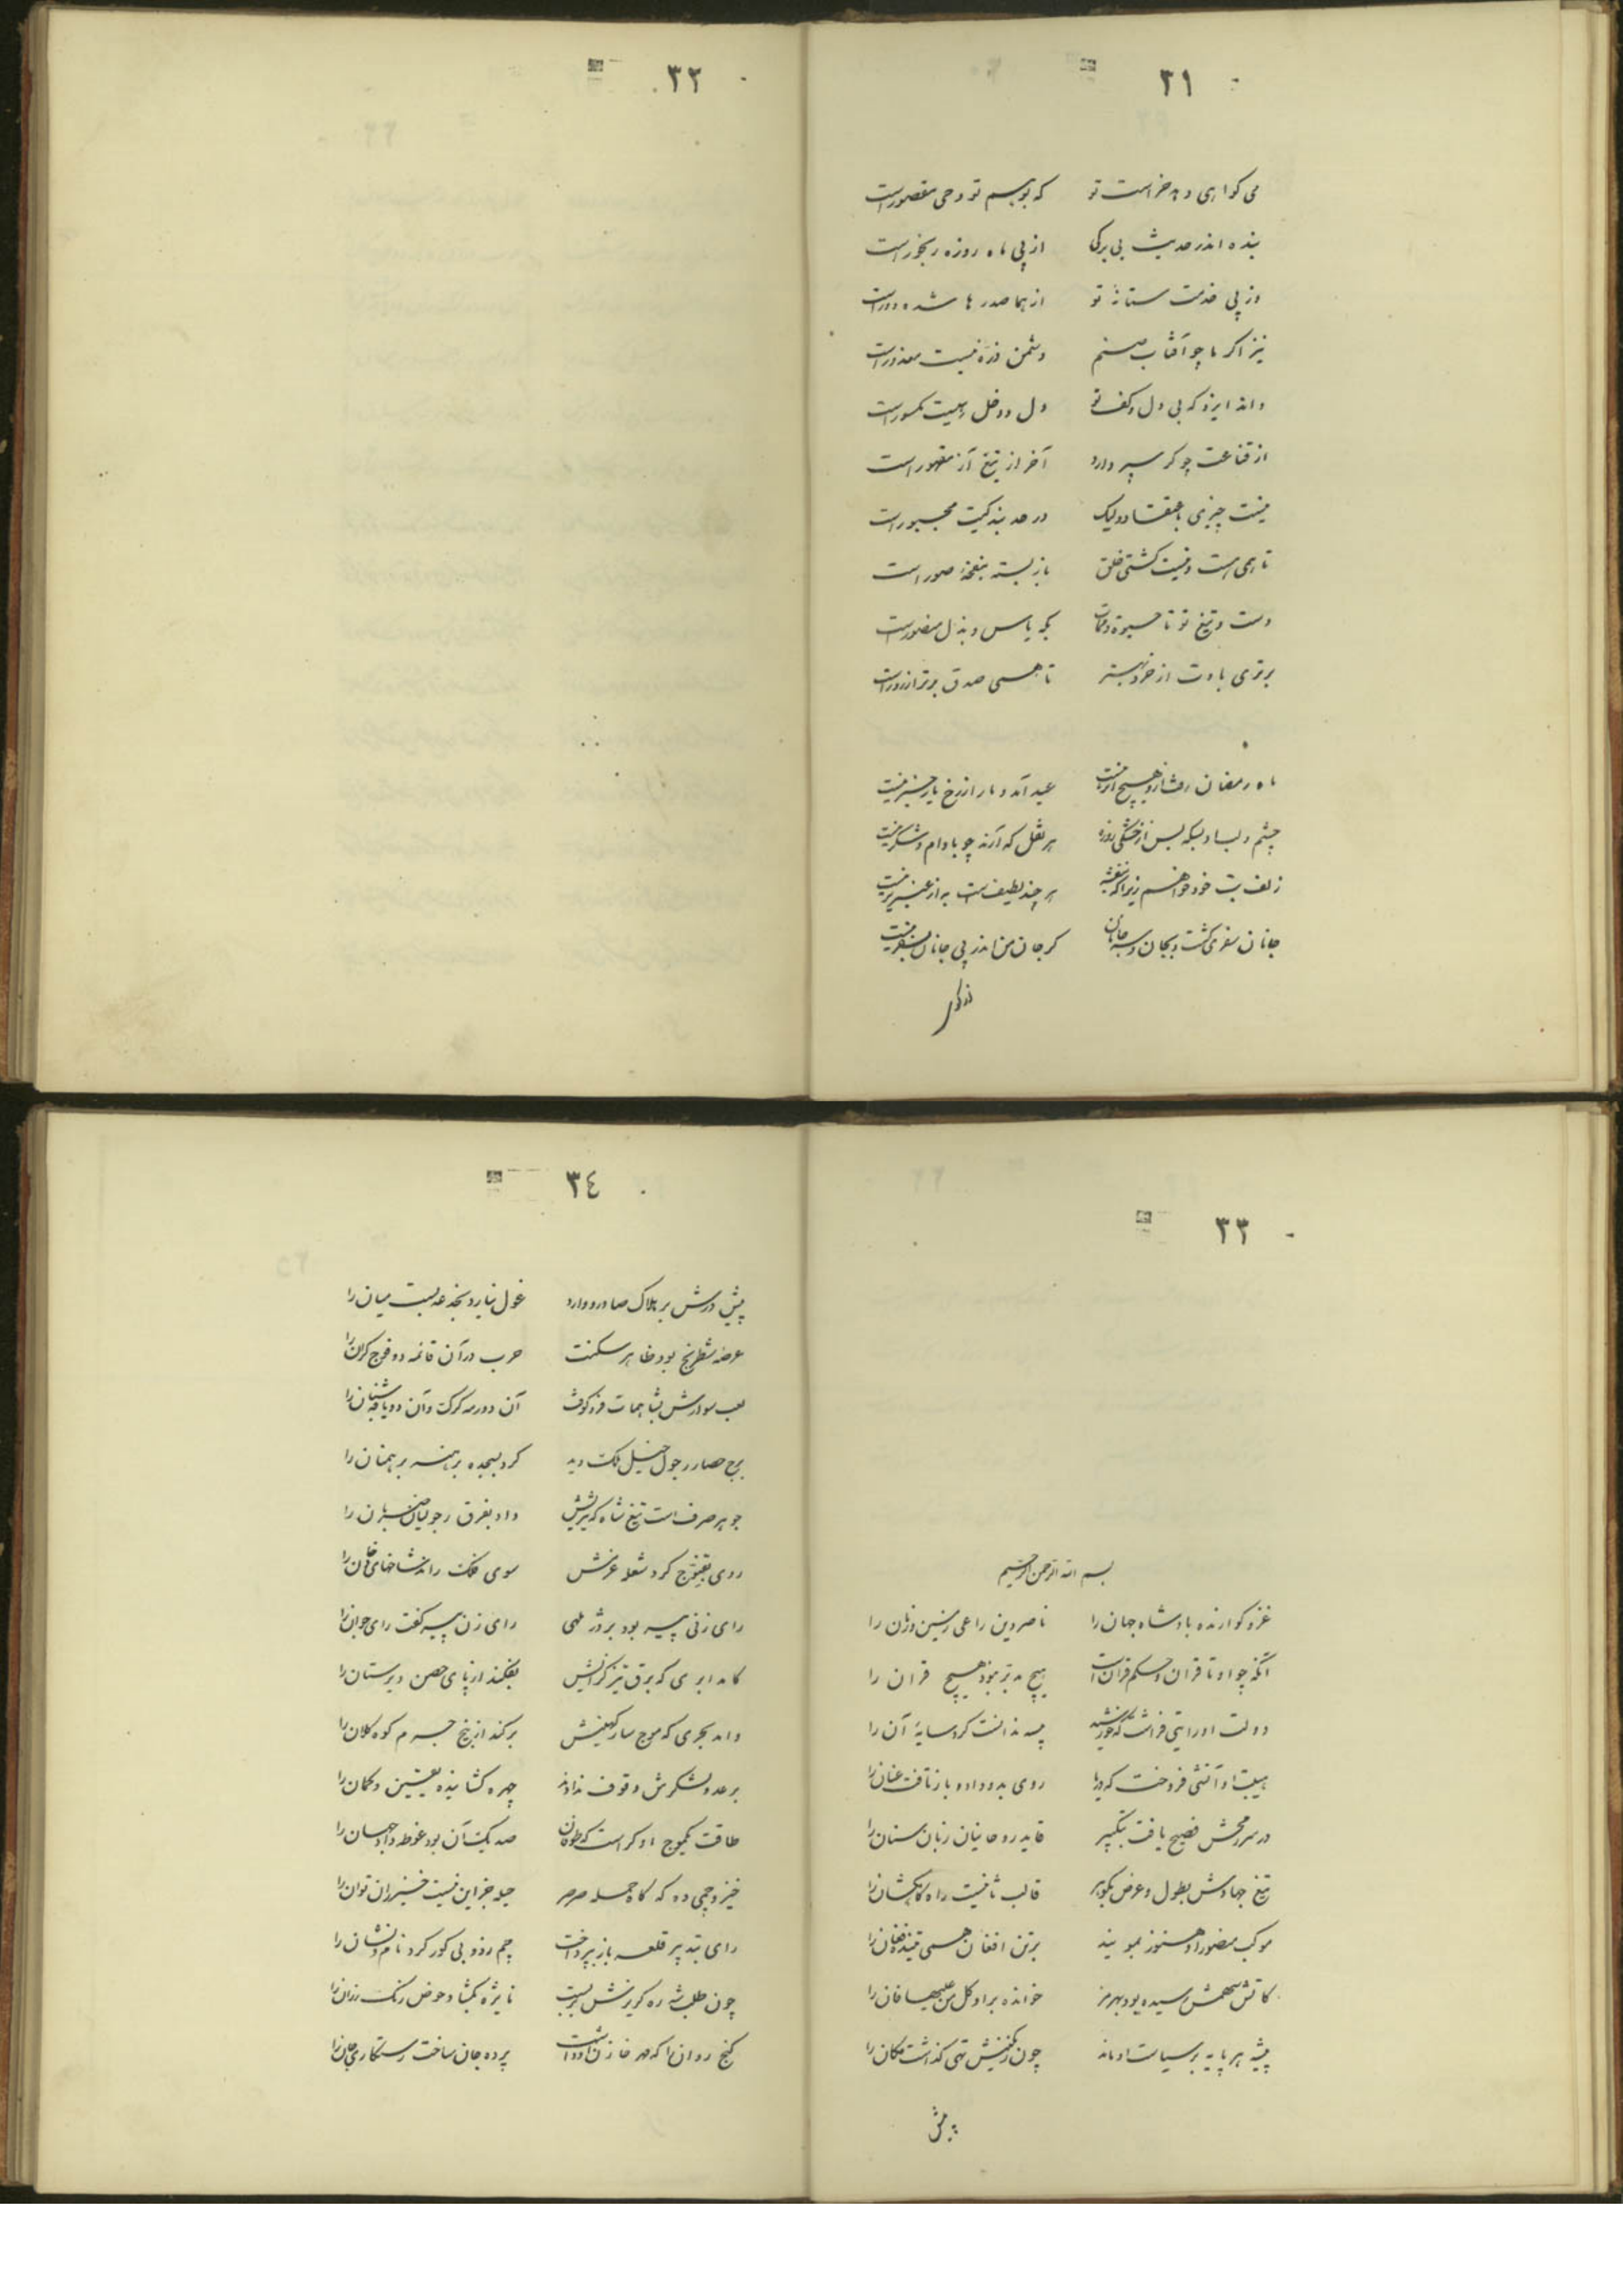 ۳۱
می کواهی دهد خراست تو که بوهم تو وحی مقصور است
بنده اندر حدیث بی برکی از پی ماه روزه رنجور است
وز پی خدمت ستانهٔ تو از هما صدرها شده دور است
نیز اکر با چو آفتاب صنم دشمن ذره نیست معذور است
داند ایزد که بی دل و کف تو دل و دخل رهیت مکسور است
از قناعت چو کر سپر دارد آخر از تیغ آز مقهور است
نیست چیزی باعتقاد ولیک در حد بندکیت مجبور است
تا همی هست و نیست کشتی خلق باز بسته بنفخهٔ صور است
دست و تیغ تو تا حیوة و ممات بکه یاس و بذل منصور است
برتری بادت از خرد بهتر تا همی صدق برتر از زور است
ماه رمضان رفت از هیچ اثر نیست عید آمد و مار از رخ یار خبر نیست
چشم و لب او بسکه پس از خشکی روزه هر نقل که آرند چو بادام و شکر نیست
زلف بت خود خواهم زیرا که بنفشه هر چند لطیف است به از عنبر تر نیست
جانان سفری کشت و بجان و سر جانان کر جان من اندر پی جانان بسفر نیست
۳۲
۳۳
بسم الله الرحمن الرحیم
غزو کوارنده باد شاه جهان را ناصر دین راعی زمین و زمان را
آنکه چو او تا قران و حکم قران است هیچ مدبر نبود هیچ قران را
دولت او رایتی فراشت که خورشید سایهٔ آن را
هیبت او آتشی فروخت که دریا روی بدو داد و باز تافت عنان را
در سر رمحش فصیح یافت بتکبیر قاید روحانیان زبان سنان را
تیغ جهادش بطول و عرض بکوهر قالب ثانیست راه کاهکشان را
موکب منصور او هنوز نبویند برتن افغان همی تنند فغان را
کاتش سهمش رسیده بود بهرمز خوانده بر او کل من علیها فان را
بیشه هر پایه بر سیاست او ماند چون ز کمینش تهی کذاشت مکان را
پیش
۳٤
پیش درش بر هلاک صادر و وارد غول نیارد بخدعه بست میان را
عرصه شطرنج بود ظاهر سکنت حرب در آن قائمه دو فوج کران را
لعب سوارش بشاهمات فرو کوفت آن دو رمه کرک و آن دو یافه شبان را
برج حصار رجول خیل ملک دید کرد بسجده برهنه برهمنان را
جوهر صرف است تیغ شاه که داد بفرق
روی کرد شعله عزمش سوی فلک راند شاخهای دخان را
رای زنی پیر بود بر در ملهی رای زن پیر کفت رای جوان را
کامد ابری که برق تیز کرانش بفکند از پای حصن دیرستان را
وامد بحری که موج سار کهینش برکند از بیخ جرم کوه کلان را
برعدد لشکرش وقوف ندادند چهره کشاینده یقین و کمان را
طاقت یکموج او کراست که طوفان صد یک آن بود غوطه داد جهان را
خیز و جهی ده که کاه حمله صرصر حیله جز این نیست خیزران توان را
رای بتدبیر قلعه باز بپرداخت جم زد و پی کور کرد نام و نشان را
چون طلب شه ره کریزش بر بست نایژه بکشاد حوض رنک رزان را
کنج روان را که مهر خازن او داشت پرده جان ساخت رستکاری جان را